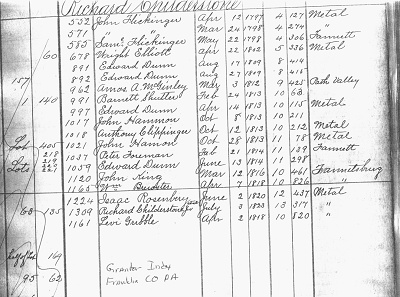 Richard Childerstone
552 John Flickinger Apr 12 1797 4 127 Metal
571 " Mar 24 1798 4 274 "
580 Saml Flickinger May 22 1798 4 306 Fannett
60 678 Wright Elliott Apr 22 1802 5 336 Metal
891 Edward Dunn Aug 17 1809 8 414
157 892 Edward Dunn Aug 27 1809 8 415
962 Amos A. McGinley Mar 3 1812 9 425 Path Valley
1 140 991 Barnett Shutter Feb 24 1813 10 63
997 Edward Dunn Apr 14 1813 10 115 Metal
1017 John Hammon Oct 8 1813 10 211
1018 Anthony Clippinger Oct 12 1813 10 212 Metal
Lot 405 1021 John Hannon Oct 28 1813 11 78 Metal
218 1037 Peter Foreman Feb 21 1814 11 139 Fannett
Lots 219 1059 Edward Dunn June 13 1814 11 298
221 1120 John King Mar 12 1816 10 461 Fannettsburg
1163 Wm Apr 7 1818 10 826 "
1224 Isaac Rosenbury June 2 1820 12 437 Metal
63 135 1309 Richard Childerstone July 3 1823 13 317 "
1161 Levi Gribble Apr 2 1818 10 820 "
169
95 62
Grantor Index
Franklin CO PA